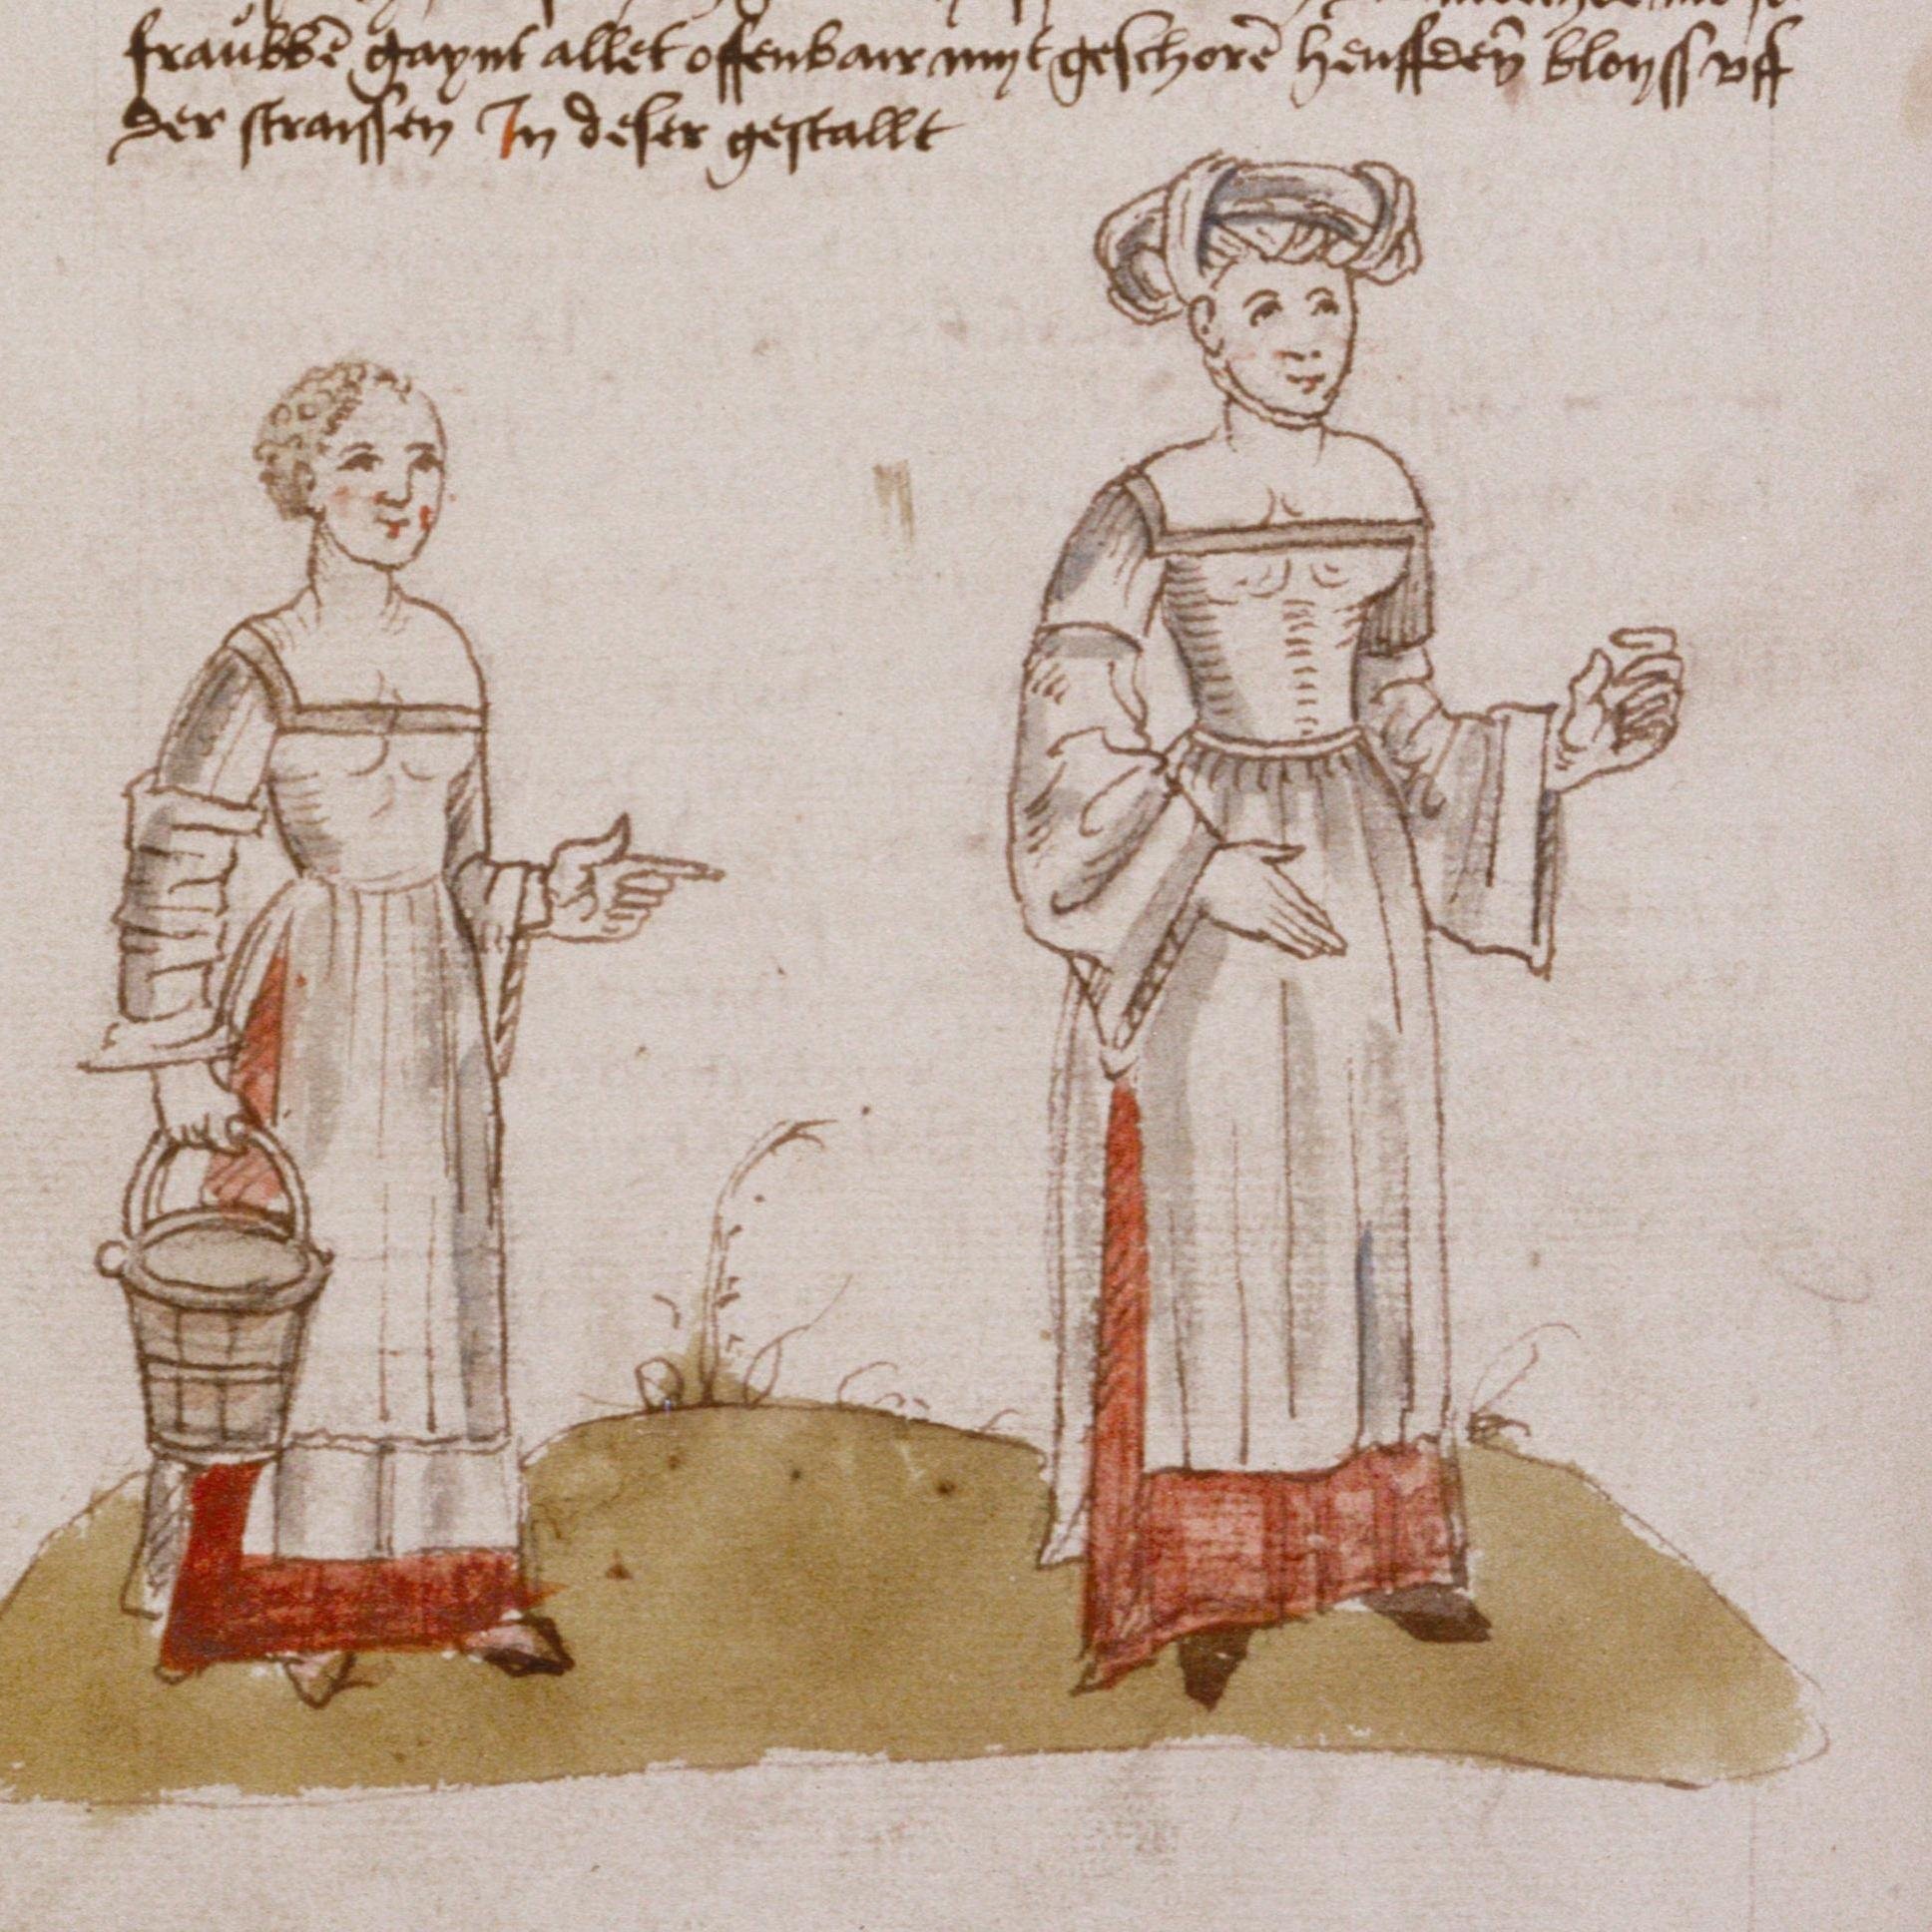 fraůwē gaynt allet offenbair myt geschorē heuffdeñ bloyss vff
der straissen In deser gestallt